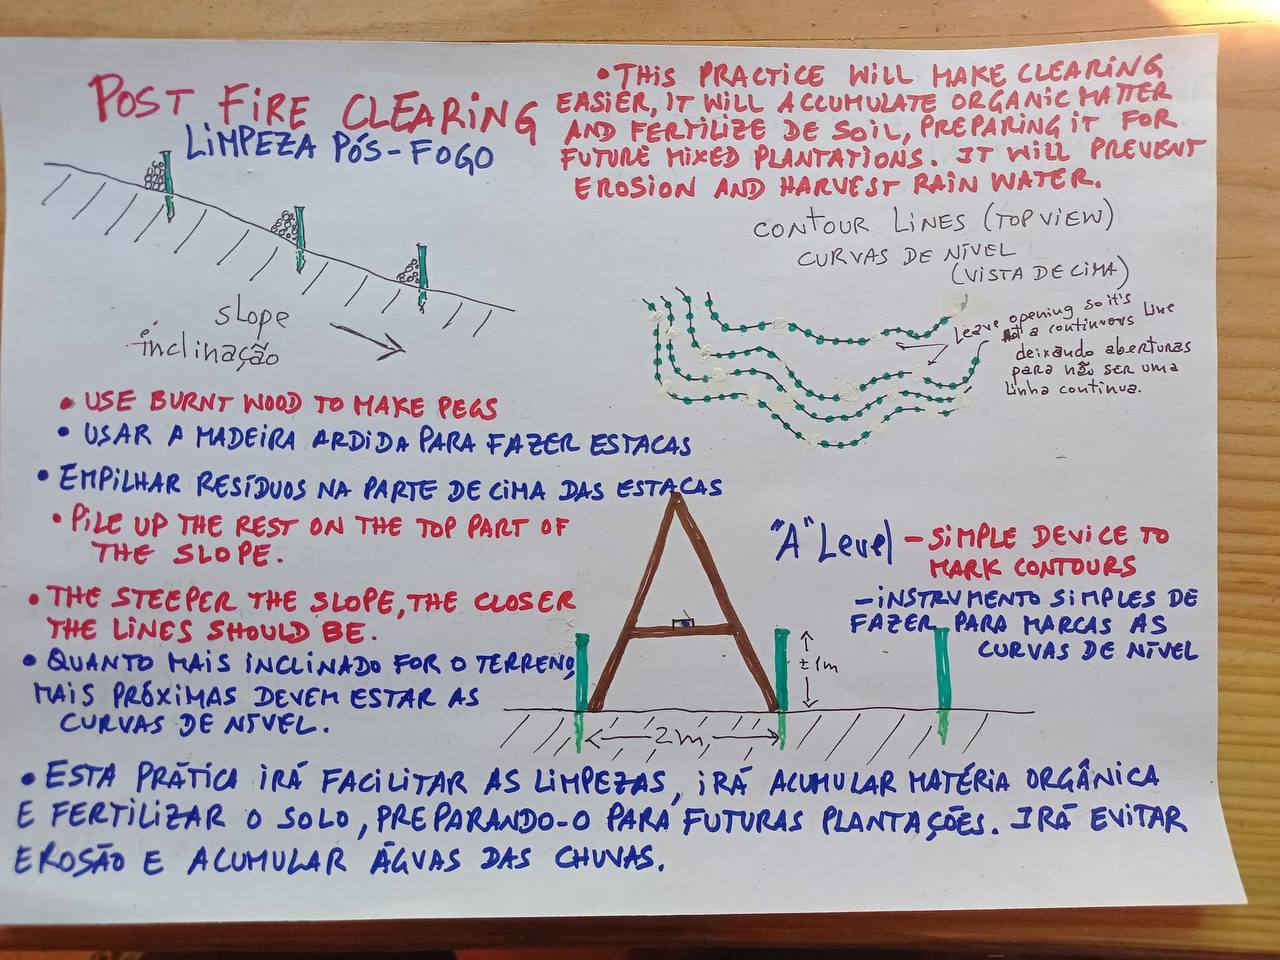 POST FIRE CLEARING
LIMPEZA PÓS-FOGO
• THIS PRACTICE WILL MAKE CLEARING
EASIER, IT WILL ACCUMULATE ORGANIC MATTER
AND FERTILIZE DE SOIL, PREPARING IT FOR
FUTURE MIXED PLANTATIONS. IT WILL PREVENT
EROSION AND HARVEST RAIN WATER.
CONTOUR LINES (TOP VIEW)
CURVAS DE NÍVEL
(VISTA DE CIMA)
Leave opening so it's
not a continuous line
deixando aberturas
para não ser uma
linha continua.
slope
inclinação
• USE BURNT WOOD TO MAKE PEGS
• USAR A MADEIRA ARDIDA PARA FAZER ESTACAS
• EMPILHAR RESÍDUOS NA PARTE DE CIMA DAS ESTACAS
• PILE UP THE REST ON THE TOP PART OF
THE SLOPE.
• THE STEEPER THE SLOPE, THE CLOSER
THE LINES SHOULD BE.
• QUANTO MAIS INCLINADO FOR O TERRENO,
MAIS PRÓXIMAS DEVEM ESTAR AS
CURVAS DE NÍVEL.
"A" Level – SIMPLE DEVICE TO
MARK CONTOURS
– INSTRUMENTO SIMPLES DE
FAZER PARA MARCAS AS
CURVAS DE NÍVEL
± 1m
2m
• ESTA PRÁTICA IRÁ FACILITAR AS LIMPEZAS, IRÁ ACUMULAR MATÉRIA ORGÂNICA
E FERTILIZAR O SOLO, PREPARANDO-O PARA FUTURAS PLANTAÇÕES. IRÁ EVITAR
EROSÃO E ACUMULAR ÁGUAS DAS CHUVAS.